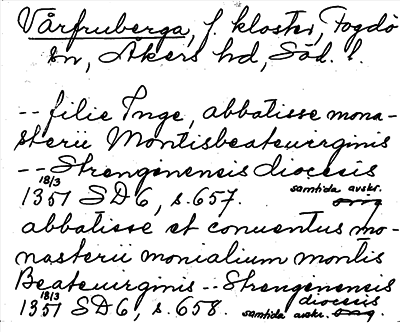 Vårfruberga, f. kloster, Fogdö
sn, Åkers hd, Söd. l.
-- filie Inge, abbatisse mona-
sterii Montisbeateuirginis
-- Strengenensis diocesis
18/3
1351 SD6, s. 657. samtida avskr.
abbatisse et conuentus mo-
nasterii monialium montis
Beateuirginis -- Strengenensis
18/3 diocesis
1351 SD6, s. 658. samtida avskr.